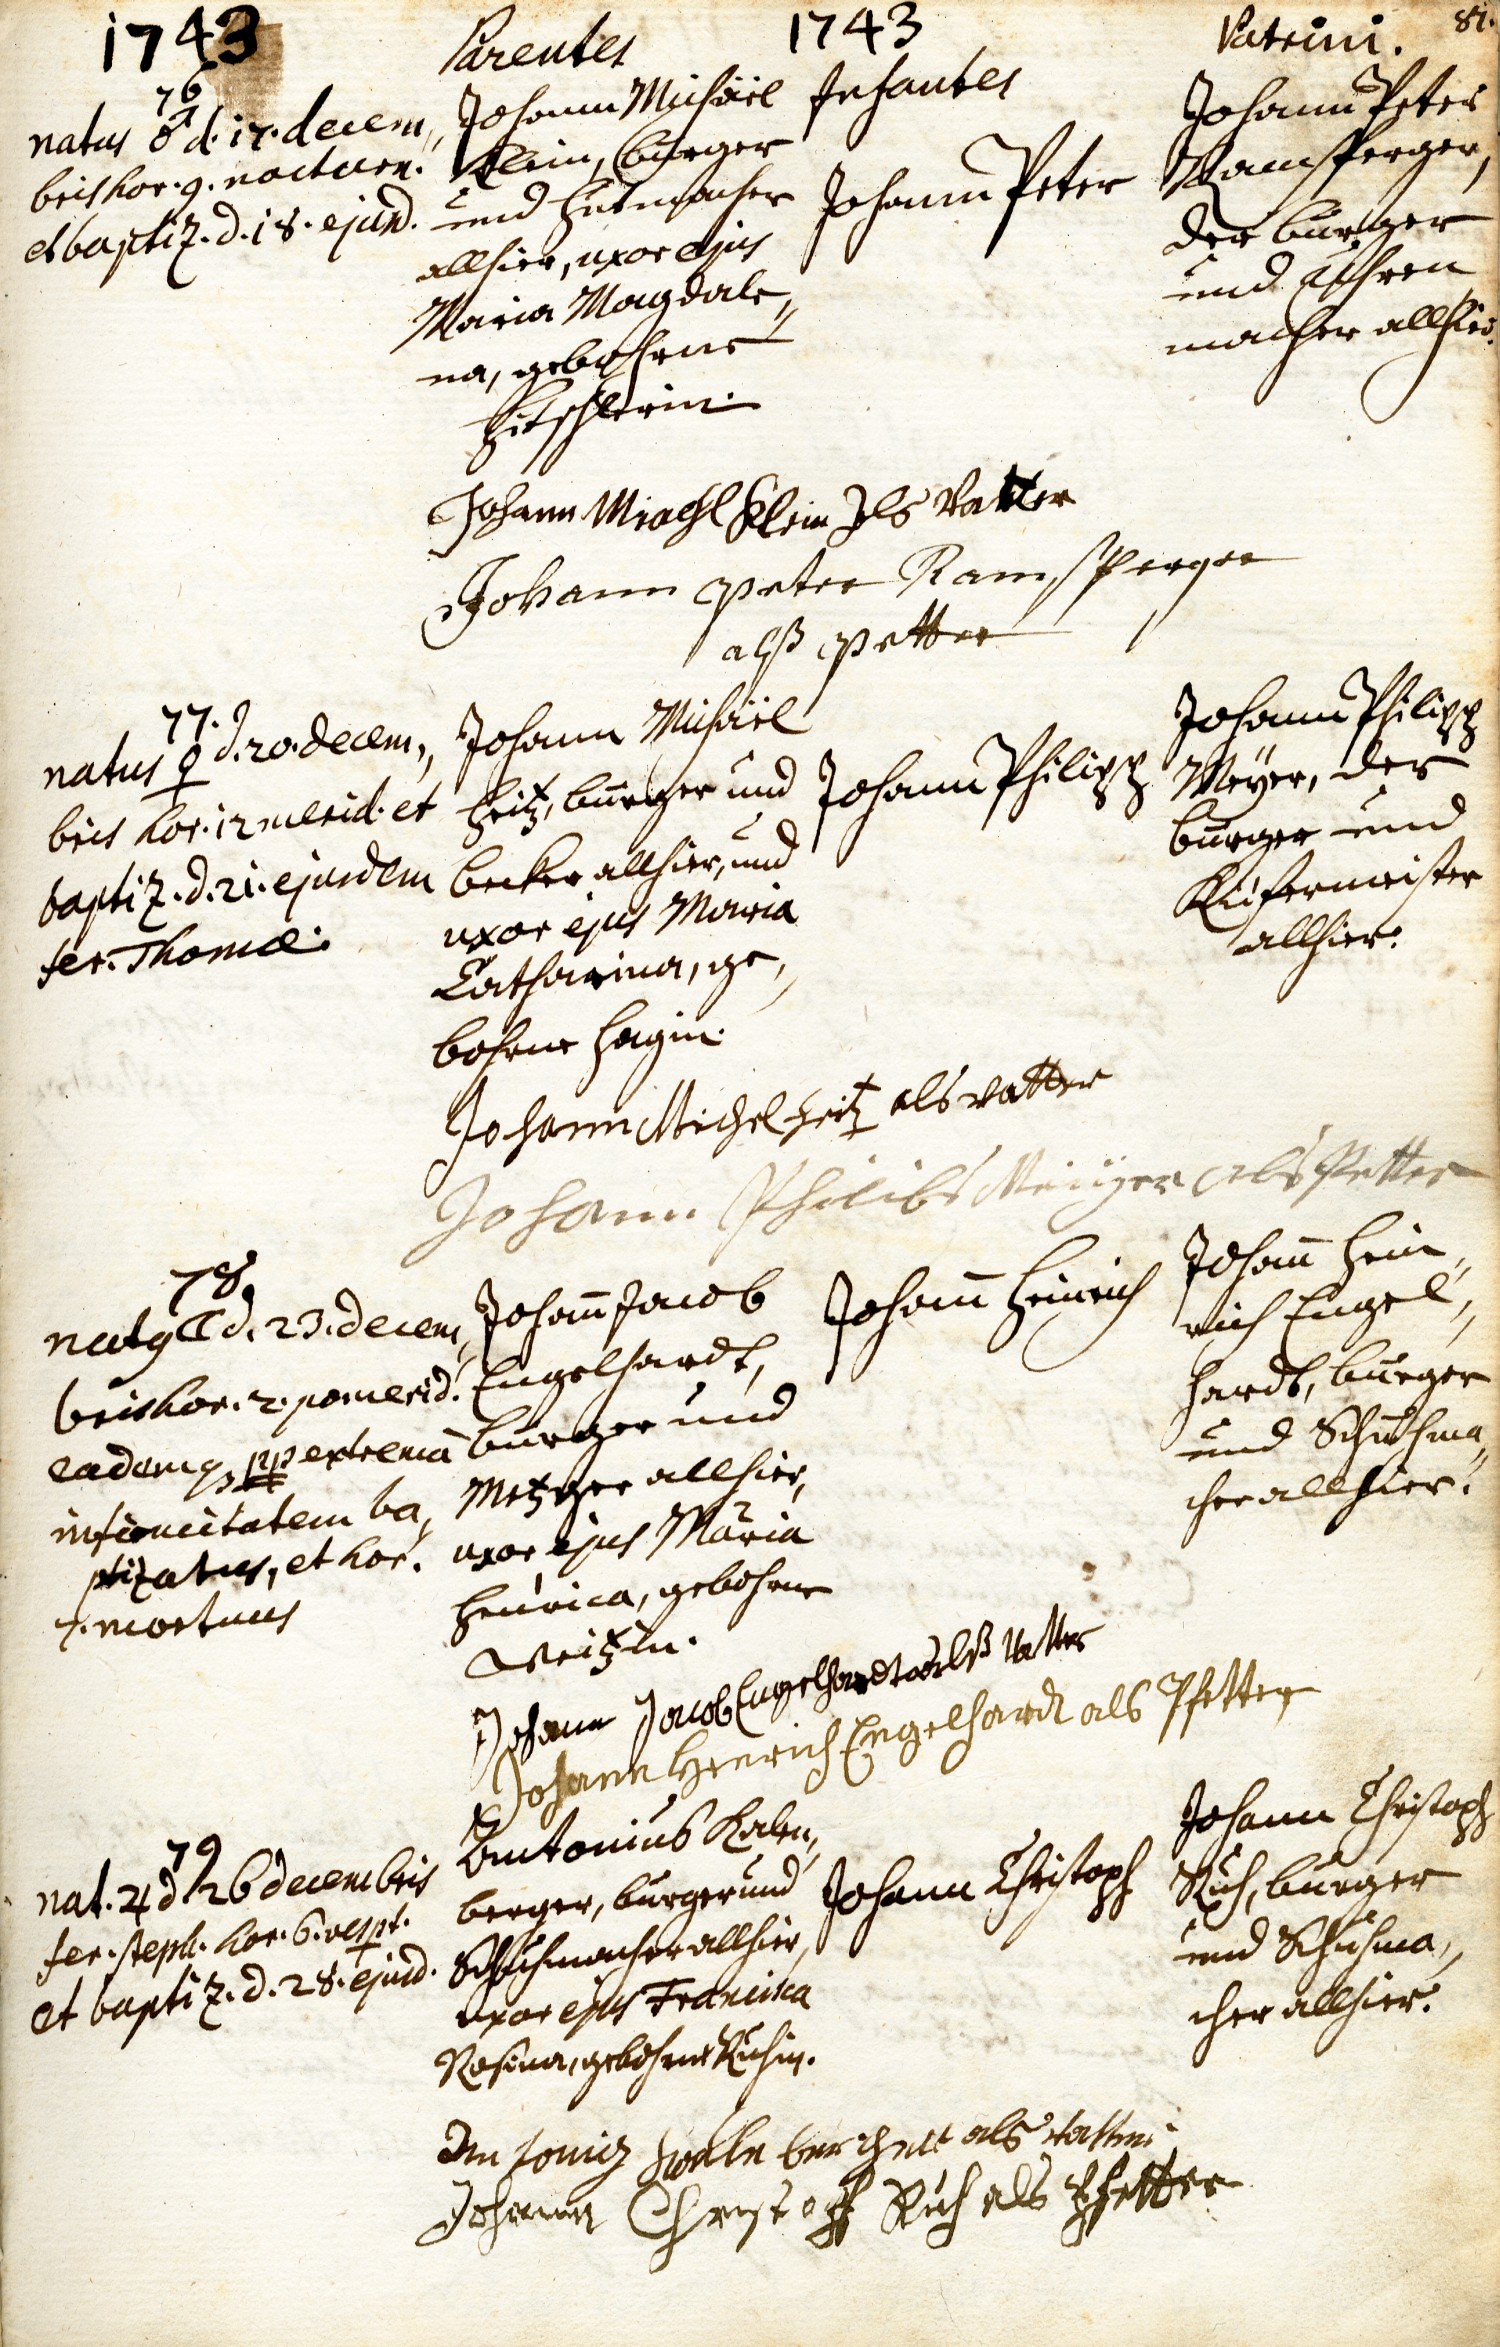 1743
1743
81.
Parentes
Infantes
Patrini.
76
natus ♂ d. 17. decem„
bris hor. 9. nocturn.
et baptiz. d. 18. ejusd.
Johann Michäel
Klein, burger
und Hutmacher
allhier, uxor ejus
Maria Magdale„
na, gebohrne
Johann Peter
Johann Peter
Ramsperger,
der burger
und Uhren
macher allhier.
Johann Michl Klein Als Vatter
Johann peter Ramsperger
alß petter
77.
natus ♀ d. 20. decem„
bris hor. 12 merid. et
baptiz. d. 21. ejusdem
fer. Thomæ.
Johann Michäel
Heitz, burger und
becker allhier, und
uxor ejus Maria
Catharina, ge„
bohrne Hagin.
Johann Philipp
Johann Philipp
Meÿer, der
burger und
Küfermeister
allhier.
Johann Michel Heitz als vatter
Johann Philibs Meiÿer als Petter
78
natq ☾ d. 23. decem„
bris hor. 2. pomerid.
eademq ppp extremā
infirmitatem ba„
ptizatus, et hor.
7. mortuus
Joham̄ Jacob
Engelhardt,
burger und
Metzger allhier,
uxor ejus Maria
Henrica, gebohrne
Weitzin.
Joham̄ Heinrich
Joham̄ Hein„
rich Engel„
hardt, burger
und Schuhma„
cher allhier.
Johann Jacob Engelhardt alß Vatter
Johann Henrich Engelhardt als Pfetter
79
nat. ♃ d. 26 decembris
fer. steph. hor. 6. vespt.
et baptiz. d. 28. ejusd.
Antonius Kalen„
berger, burger und
Schuhmacher allhier,
uxor ejus Francisca
Rosina, gebohrne Ruhin.
Johann Christoph
Johann Christoph
Ruh, burger
und Schuhma„
cher allhier.
als vatter
Johann Christoff Ruh als Pfetter